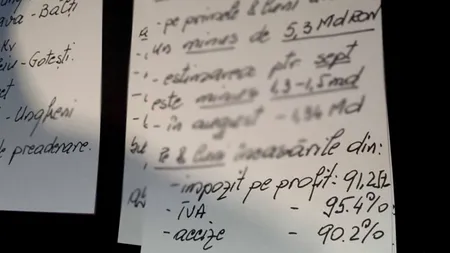 - Bălți
kv
- Gotești.
- Ungheni
predenare.
a - pe primele 8 luni
un minus de 5,3 Md RON
- estimarea ptr sept
este minus 1,3-1,5 md
- în august - 1,94 Md
8 luni încasările din:
- impozit pe profit: 91,2%
- TVA - 95.4%
- accize - 90.2%